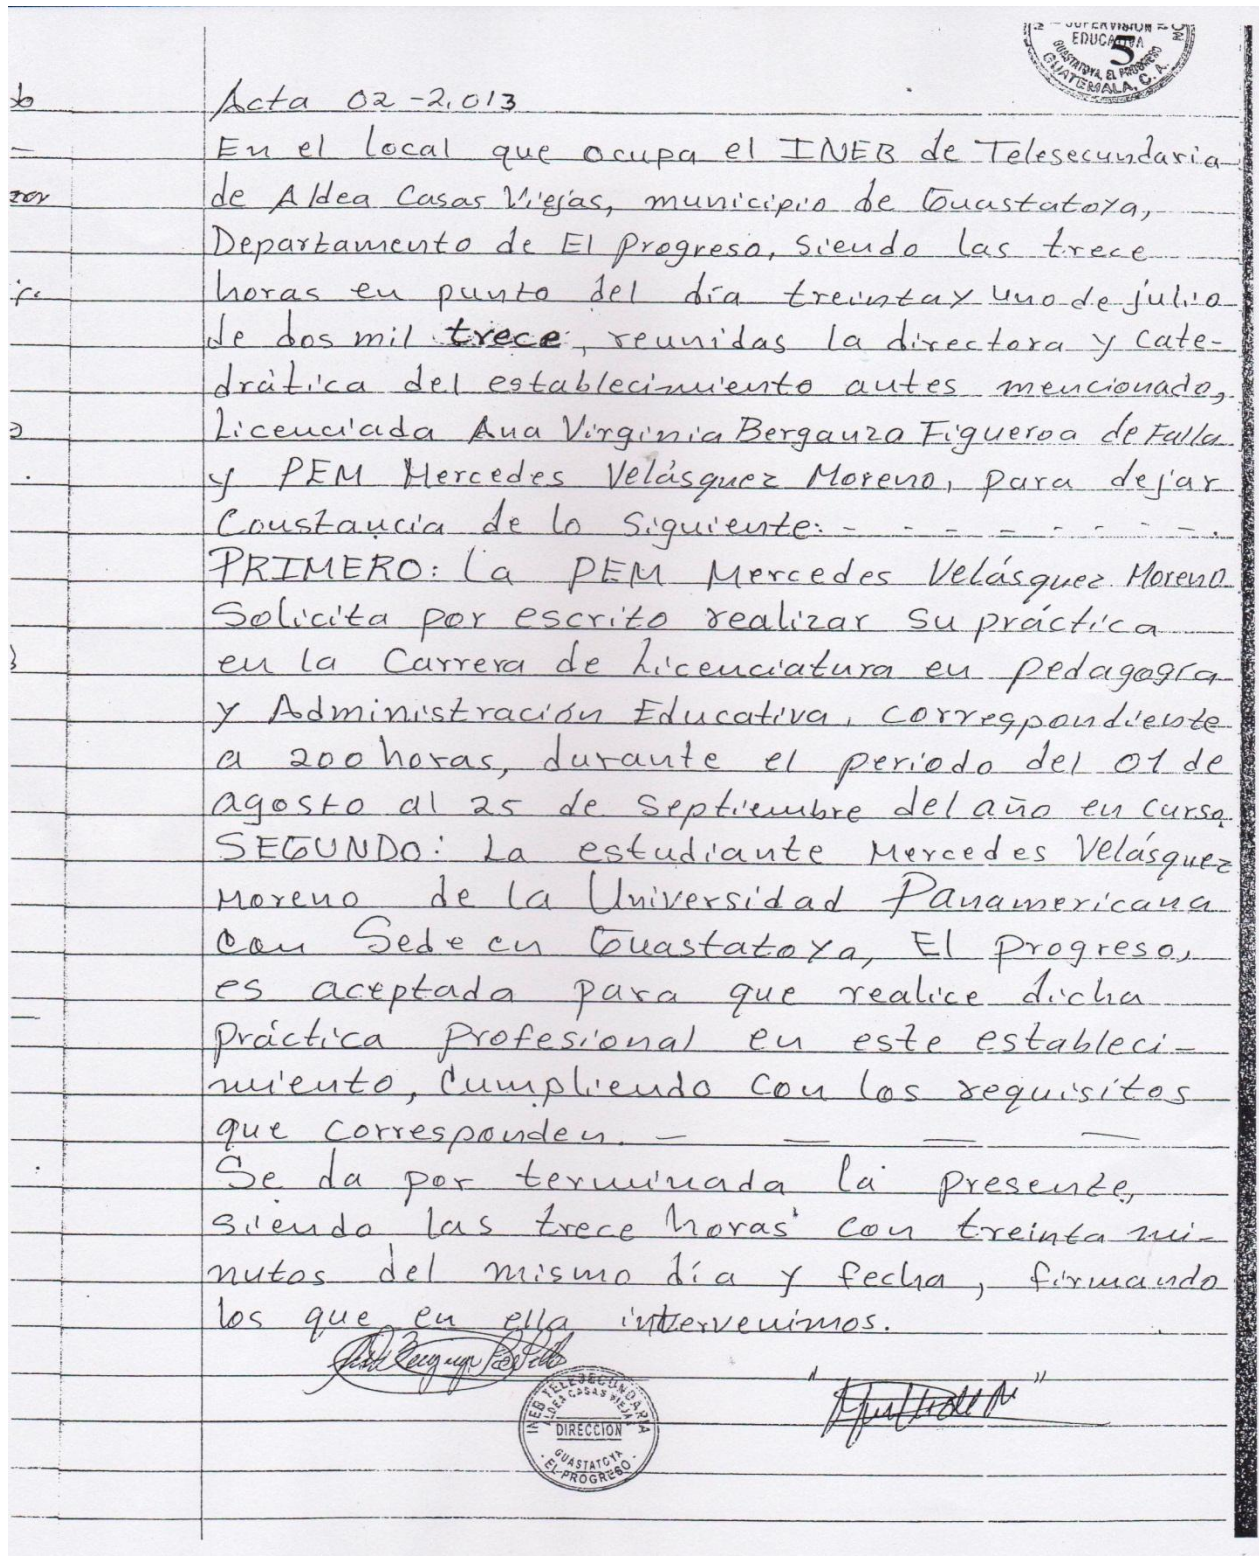 SUPERVISION
EDUCATIVA
5
GUASTATOYA, EL PROGRESO
GUATEMALA, C. A.
Acta 02-2,013
En el local que ocupa el INEB de Telesecundaria
de Aldea Casas Viejas, municipio de Guastatoya,
Departamento de El Progreso, siendo las trece
horas en punto del día treinta y uno de julio
de dos mil trece, reunidas la directora y cate-
drática del establecimiento antes mencionado,
Licenciada Ana Virginia Berganza Figueroa de Falla
y PEM Mercedes Velásquez Moreno, para dejar
Constancia de lo siguiente: - - - - - - - -.
PRIMERO: La PEM Mercedes Velásquez Moreno
Solicita por escrito realizar su práctica
en la Carrera de Licenciatura en pedagogía
y Administración Educativa, correspondiente
a 200 horas, durante el periodo del 01 de
agosto al 25 de Septiembre del año en curso.
SEGUNDO: La estudiante Mercedes Velásquez
Moreno de la Universidad Panamericana
con Sede en Guastatoya, El Progreso,
es aceptada para que realice dicha
práctica profesional en este estableci-
miento, cumpliendo con los requisitos
que corresponden. — — — —
Se da por terminada la presente,
siendo las trece horas con treinta mi-
nutos del mismo día y fecha, firmando
los que en ella intervenimos.
INEB TELESECUNDARIA
ALDEA CASAS VIEJAS
DIRECCION
GUASTATOYA
EL PROGRESO